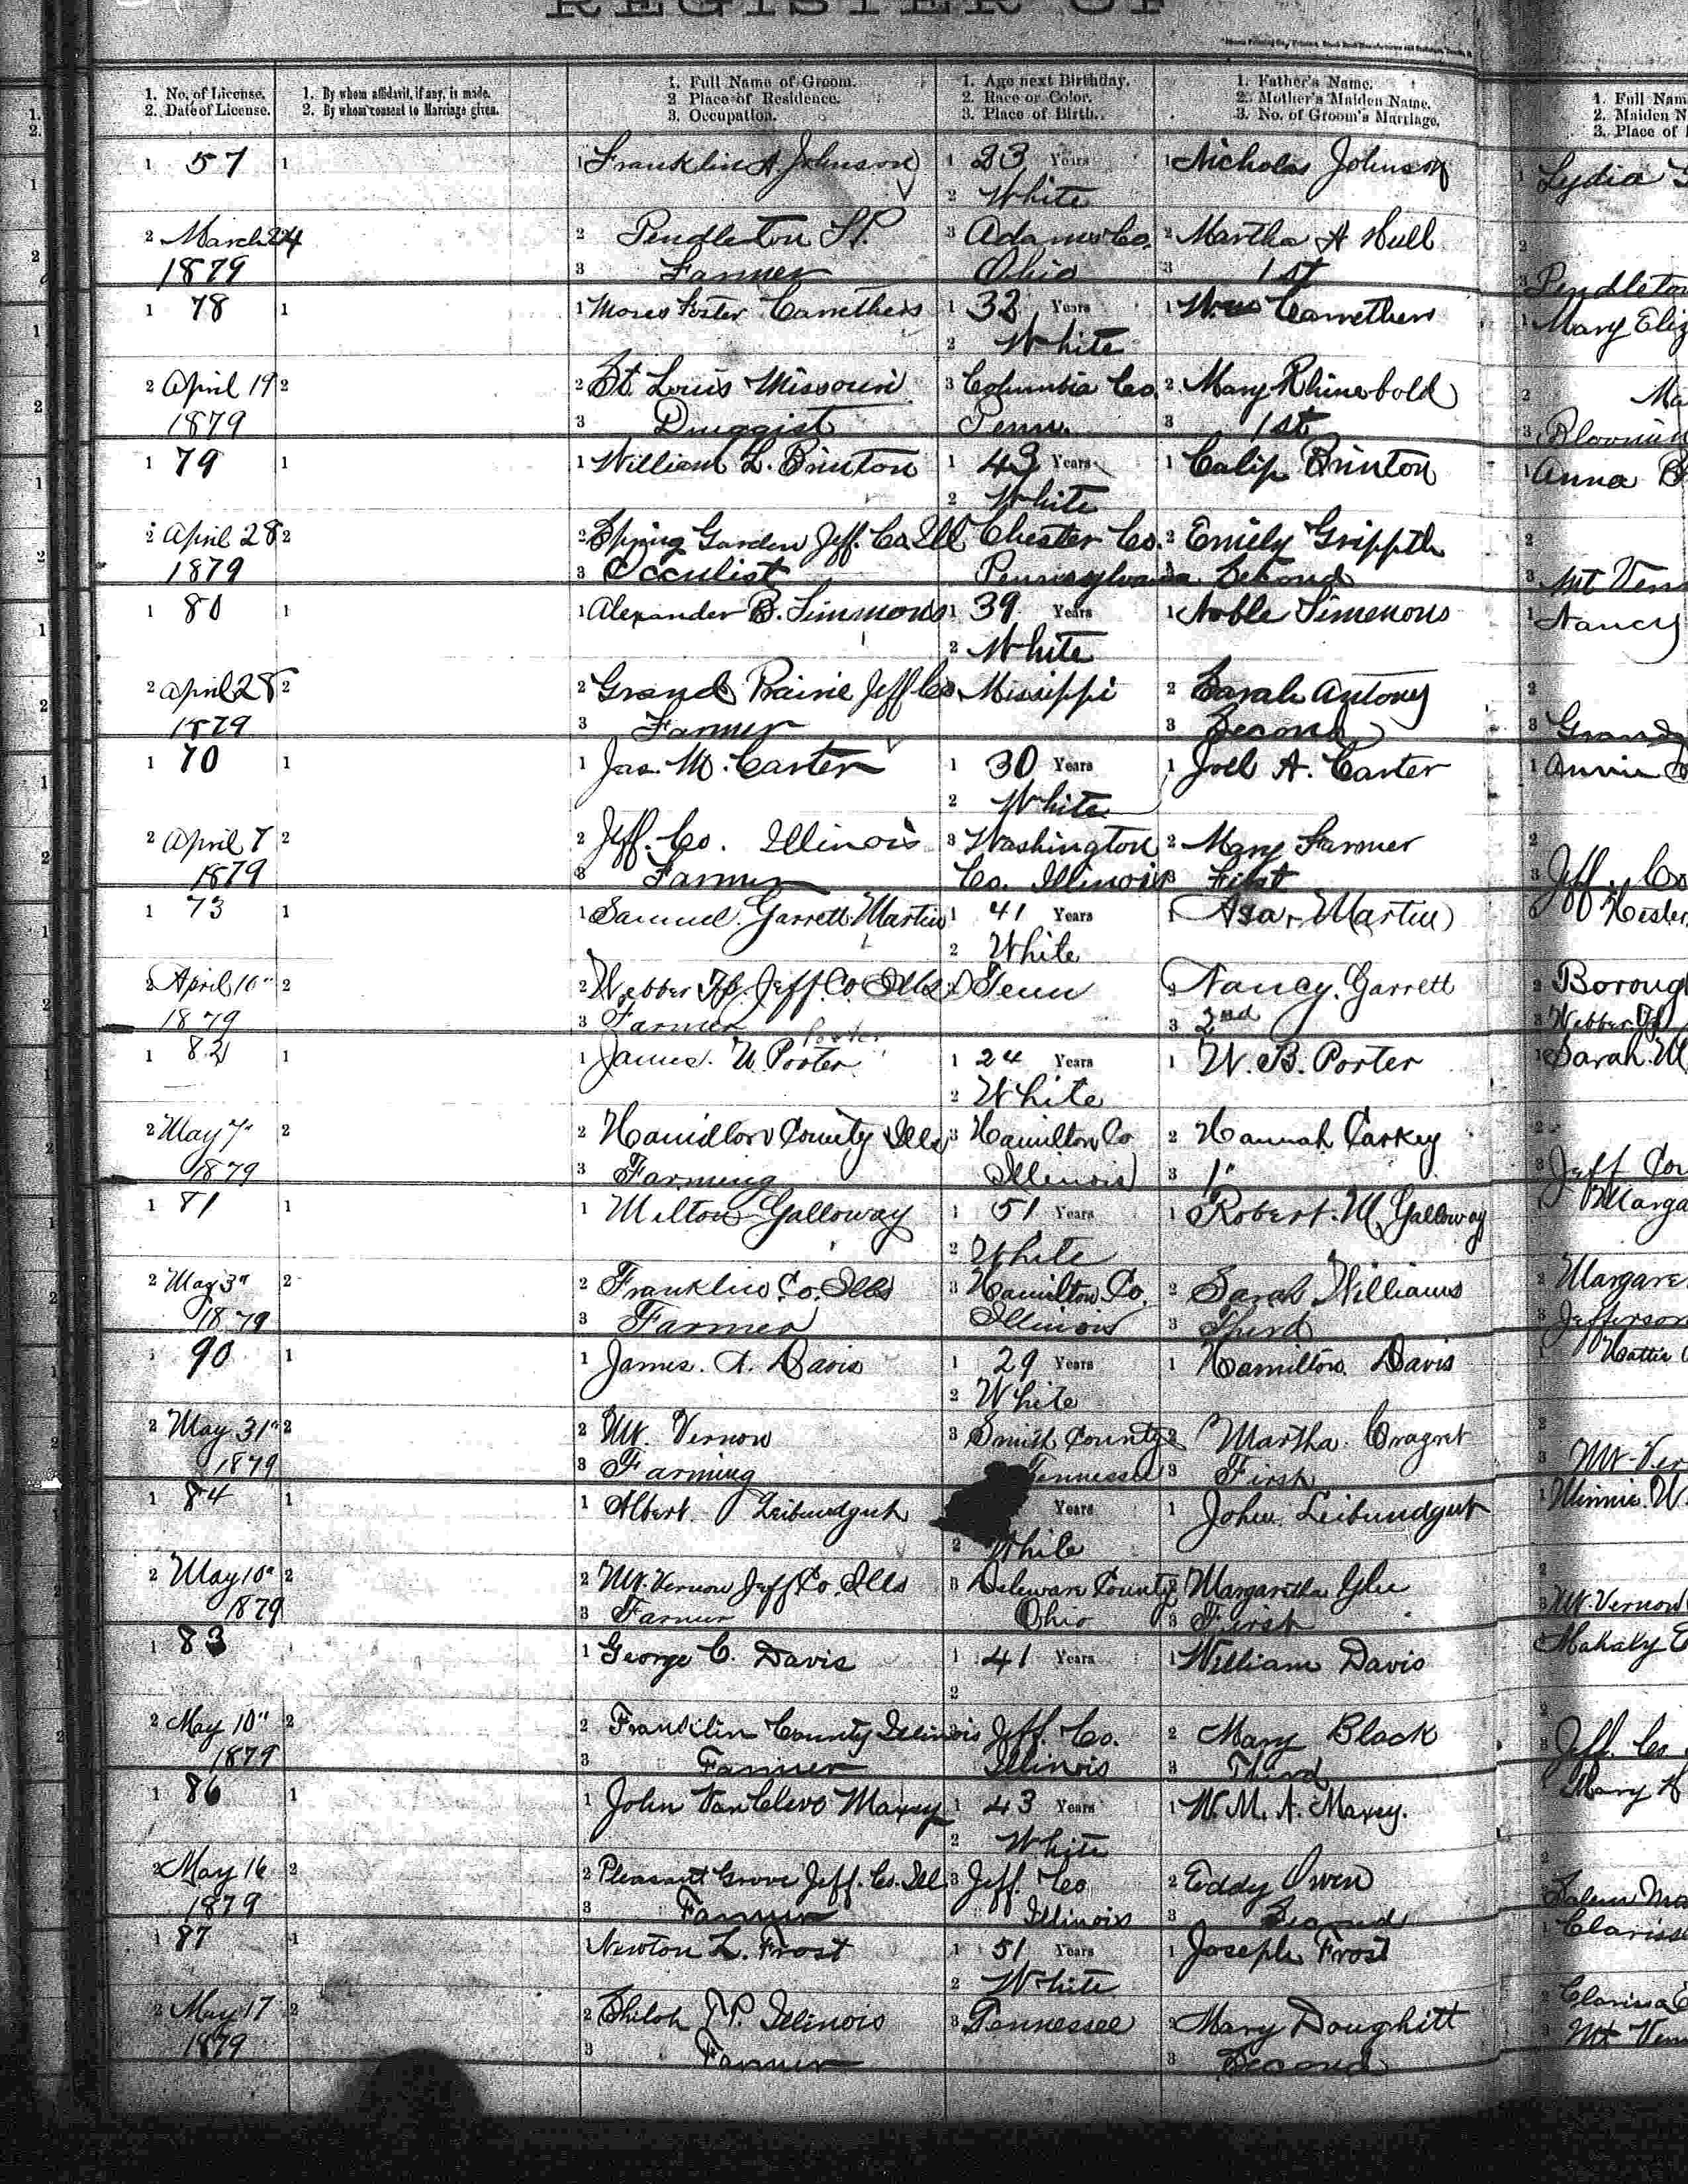 REGISTER OF
1. No. of License.
2. Date of License.
1. By whom affidavit, if any, is made.
2. By whom consent to Marriage given.
1. Full Name of Groom.
2 Place of Residence.
3. Occupation.
1. Age next Birthday.
2. Race or Color.
3. Place of Birth.
1. Father's Name.
2. Mother's Maiden Name.
3. No. of Groom's Marriage.
1. Full Nam
2. Maiden N
3. Place of
1 57 1 1 Franklin A Johnson 1 23 Years 1 Nicholas Johnson 1 Lydia
2 White
2 March 24 2 Pendleton T.P. 3 Adams Co. 2 Martha A Hull 2
1879 3 Farmer Ohio 3 1st 3 Pendleton
1 78 1 1 Moses Foster Carrethers 1 32 Years 1 Wm Carrethers 1 Mary Eliz
2 White
2 April 19 2 2 St. Louis Missouri 3 Columbia Co. 2 Mary Rhinebold 2 Ma
1879 3 Druggist Penn. 3 1st 3
1 79 1 1 William L. Brinton 1 43 Years 1 Calip Brinton 1 Anna B
2 White
2 April 28 2 2 Spring Garden Jeff. Co. Ill Chester Co. 2 Emily Grippth 2
1879 3 Occulist Pennsylvania Second 3 Mt Vern
1 80 1 1 Alexander B. Simmons 1 39 Years 1 Noble Simmons 1 Nancy
2 White
2 April 28 2 2 Grand Prairie Jeff Co Missippi 2 Sarah Antony 2
1879 3 Farmer 3 Second 3 Grand
1 70 1 1 Jas. M. Carter 1 30 Years 1 Joel A. Carter 1 Annie
2 White
2 April 7 2 2 Jeff. Co. Illinois 3 Washington 2 Mary Farmer 2
1879 3 Farmer Co. Illinois 3 First 3 Jeff. Co
1 73 1 1 Samuel Garrett Martin 1 41 Years 1 Asa Martin Hester
2 White
2 April 10" 2 2 Webber Tp. Jeff. Co. Ills Tenn 2 Nancy Garrett 2 Boroug
1879 3 Farmer 3 2nd 3 Webber Tp
Porter
1 82 1 1 James W Porter 1 24 Years 1 W. B. Porter 1 Sarah M
2 White
2 May 7" 2 2 Hamilton County Ills 3 Hamilton Co 2 Hannah Carkey 2
1879 3 Farming Illinois 3 1" 3 Jeff Cou
1 81 1 1 Milton Galloway 1 51 Years 1 Robert M Galloway 1 Marga
2 White
2 May 3" 2 2 Franklin Co. Ills 3 Hamilton Co. 2 Sarah Williams 2 Margare
1879 3 Farmer Illinois 3 Third 3 Jefferson
1 90 1 1 James A. Davis 1 29 Years 1 Hamilton Davis 1 Hattie
2 White
2 May 31" 2 2 Mt. Vernon 3 Smith County 2 Martha 2
1879 3 Farming Tennessee 3 First 3 Mt-Ver
1 84 1 1 Albert Leibundguth Years 1 John Leibundgut 1 Minnie W
2 White
2 May 10" 2 2 Mt. Vernon Jeff Co. Ills 3 Deleware County 2 Margaretha 2
1879 3 Farmer Ohio 3 First 3 Mt. Vernon
1 83 1 George C. Davis 1 41 Years 1 William Davis Mahaly
2
2 May 10" 2 2 Franklin County Illinois Jeff. Co. 2 Mary Black 2
1879 3 Farmer Illinois 3 Third Jeff. Co.
1 86 1 1 John VanCleve Maxey 1 43 Years 1 W. M. A. Maxey. 1 Mary
2 White
2 May 16 2 2 Pleasant Grove Jeff. Co. Ill 3 Jeff. Co 2 Eddy Owen 2
1879 3 Farmer Illinois 3 Second Salem Ma
1 87 1 1 Newton L. Frost 1 51 Years 1 Joseph Frost 1 Clarissa
2 White
2 May 17 2 2 Shiloh T.P. Illinois 3 Tennessee 2 Mary Doughitt 2 Clarissa
1879 3 Farmer 3 Second 3 Mt Vern